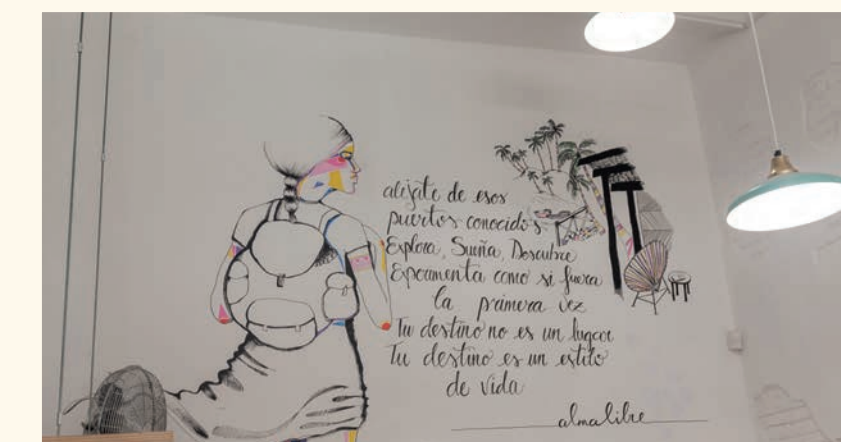 alejate de esos
puertos conocidos
Explora, Sueña, Descubre
Experimenta como si fuera
la primera vez
Tu destino no es un lugar
Tu destino es un estilo
de vida
almalibre